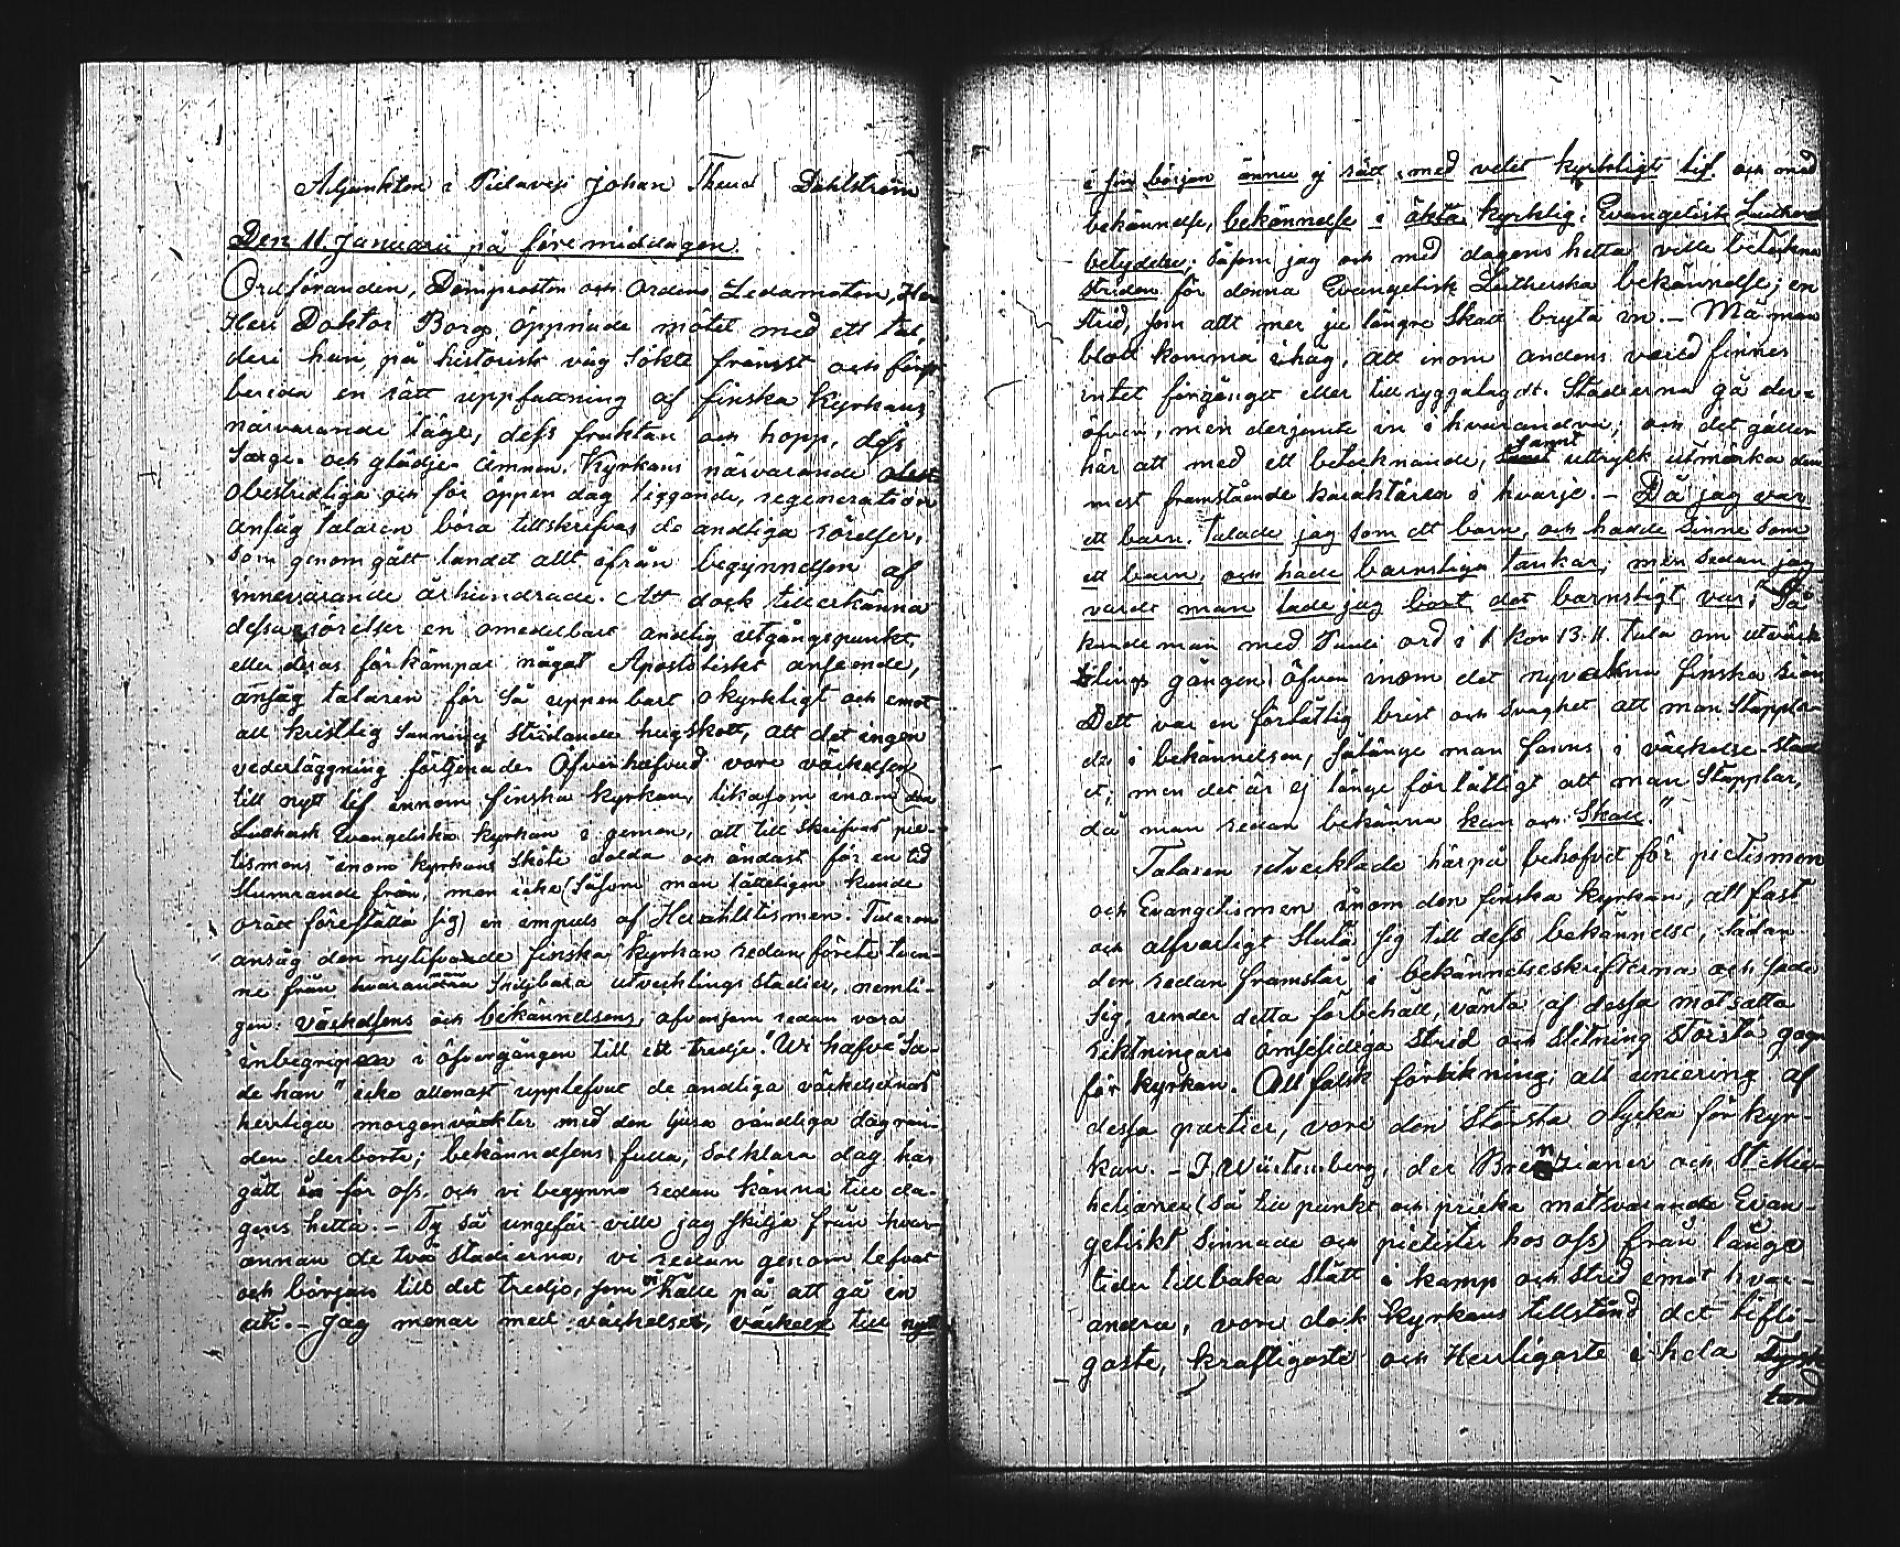 Adjunkten i Pielavesi Johan Theod Dahlström
Den 11. Januarii på föremiddagen.
Ordföranden, Domprosten och Ordens Ledamoten, Her
Herr Doktor Borg öppnade mötet med ett tal,
deri han, på historisk väg sökte främst och först
bereda en rätt uppfattning af finska Kyrkans
närvarande läge, dess fruktan och hopp, dess
sorge- och glädje-ämnen. Kyrkans närvarande
obestridliga och för öppen dag liggande, regeneration
ansåg talaren böra tillskrifvas de andliga rörelser,
som genomgått landet allt ifrån begynnelsen af
innevarande århundrade. Att dock tillerkänna
dessa rörelser en omedelbart andlig utgångspunkt,
eller deras förkämpar något Apostoliskt anseende,
ansåg talaren för så uppenbart okyrkligt och emot
all kristlig sanning stridande hugskott, att det ingen
vederläggning förtjenade. Öfverhufvud vore väckelsen
till nytt lif innom finska kyrkan, likasom inom den
Luthersk Evangeliska kyrkan i gemen, att tillskrifvas pie-
tismens inom kyrkans sköte dolda och endast för en tid
slumrande frön, men icke (såsom man lätteligen kunde
orätt föreställa sig) en impuls af Herrnhutismen. Talaren
ansåg den nylifvade finska kyrkan redan förete tven-
ne från hvarandra skiljbara utvecklings stadier, nemli-
gen: väckelsens och bekännelsens, afvensom redan vara
inbegripen i öfvergången till ett tredje. "Wi hafve" sa-
de han "icke allenast upplefvat de andliga väckelsernas
herrliga morgonväkter med den ljusa oändliga dagran-
den derborta; bekännelsens fulla, solklara dag har
gått in för oss, och vi begynna redan känna till da-
gens hetta. – Ty så ungefär ville jag skilja från hvar-
annan de två stadierna, vi redan genomlefvat
och början till det tredje, som vi hålle på att gå in
uti. – Jag menar med väckelsen, väckelse till nytt
i sin början ännu ej rätt med vetet kyrkligt lif och med
bekännelse, bekännelse i äkta kyrklig: Evangelisk Luthersk
betydelse; såsom jag och med dagens hetta ville beteckna
striden för denna Evangelisk Lutherska bekännelse; en
strid, som allt mer ju längre skall bryta in. – Må man
blott komma ihåg, att inom andens verld finnes
intet förgånget eller tillryggalagdt. Stadierna gå der-
öfver, men derjemte in i hvarandra; och det gäller
här att med ett betecknande, sannt uttryck utmärka den
mest framstående karaktären i hvarje. – Då jag var
ett barn, talade jag som ett barn, och hade sinne som
ett barn, och hade barnsliga tankar; men sedan jag
vardt man lade jag bort det barnsligt var; "Så
kunde man med Pauli ord i 1 Kor 13.11. tala om utveck
lings gången öfven inom det nyvakna finska sion
Dett var en förlåtlig brist och svaghet att man stappla-
de i bekännelsen, sålänge man fanns i väckelse-stadi
et; men det är ej länge förlåtligt att man stapplar,
då man redan bekänna kan och skall."
Talaren utvecklade härpå behofvet för pietismen
och Evangelismen inom den finska kyrkan, att fast
och alfvarligt sluta sig till dess bekännelse, sådan
den redan framstår i bekännelseskrifterna och sade
sig, under detta förbehåll, vänta af dessa motsatta
riktningars ömsesidiga strid och slitning största gagn
för kyrkan. All falsk förlikning, all uniering af
dessa partier, vore den största olycka för kyr-
kan. – I Würtemberg, der Brenzianer och St Mi-
helianer (så till punkt och pricka motsvarande Evan-
geliskt sinnade och pietister hos oss) från långa
tider tillbaka stått i kamp och strid emot hvar-
andra, vore dock kyrkans tillstånd det lifli-
gaste, kraftigaste och Herrligaste i hela Tysk
land